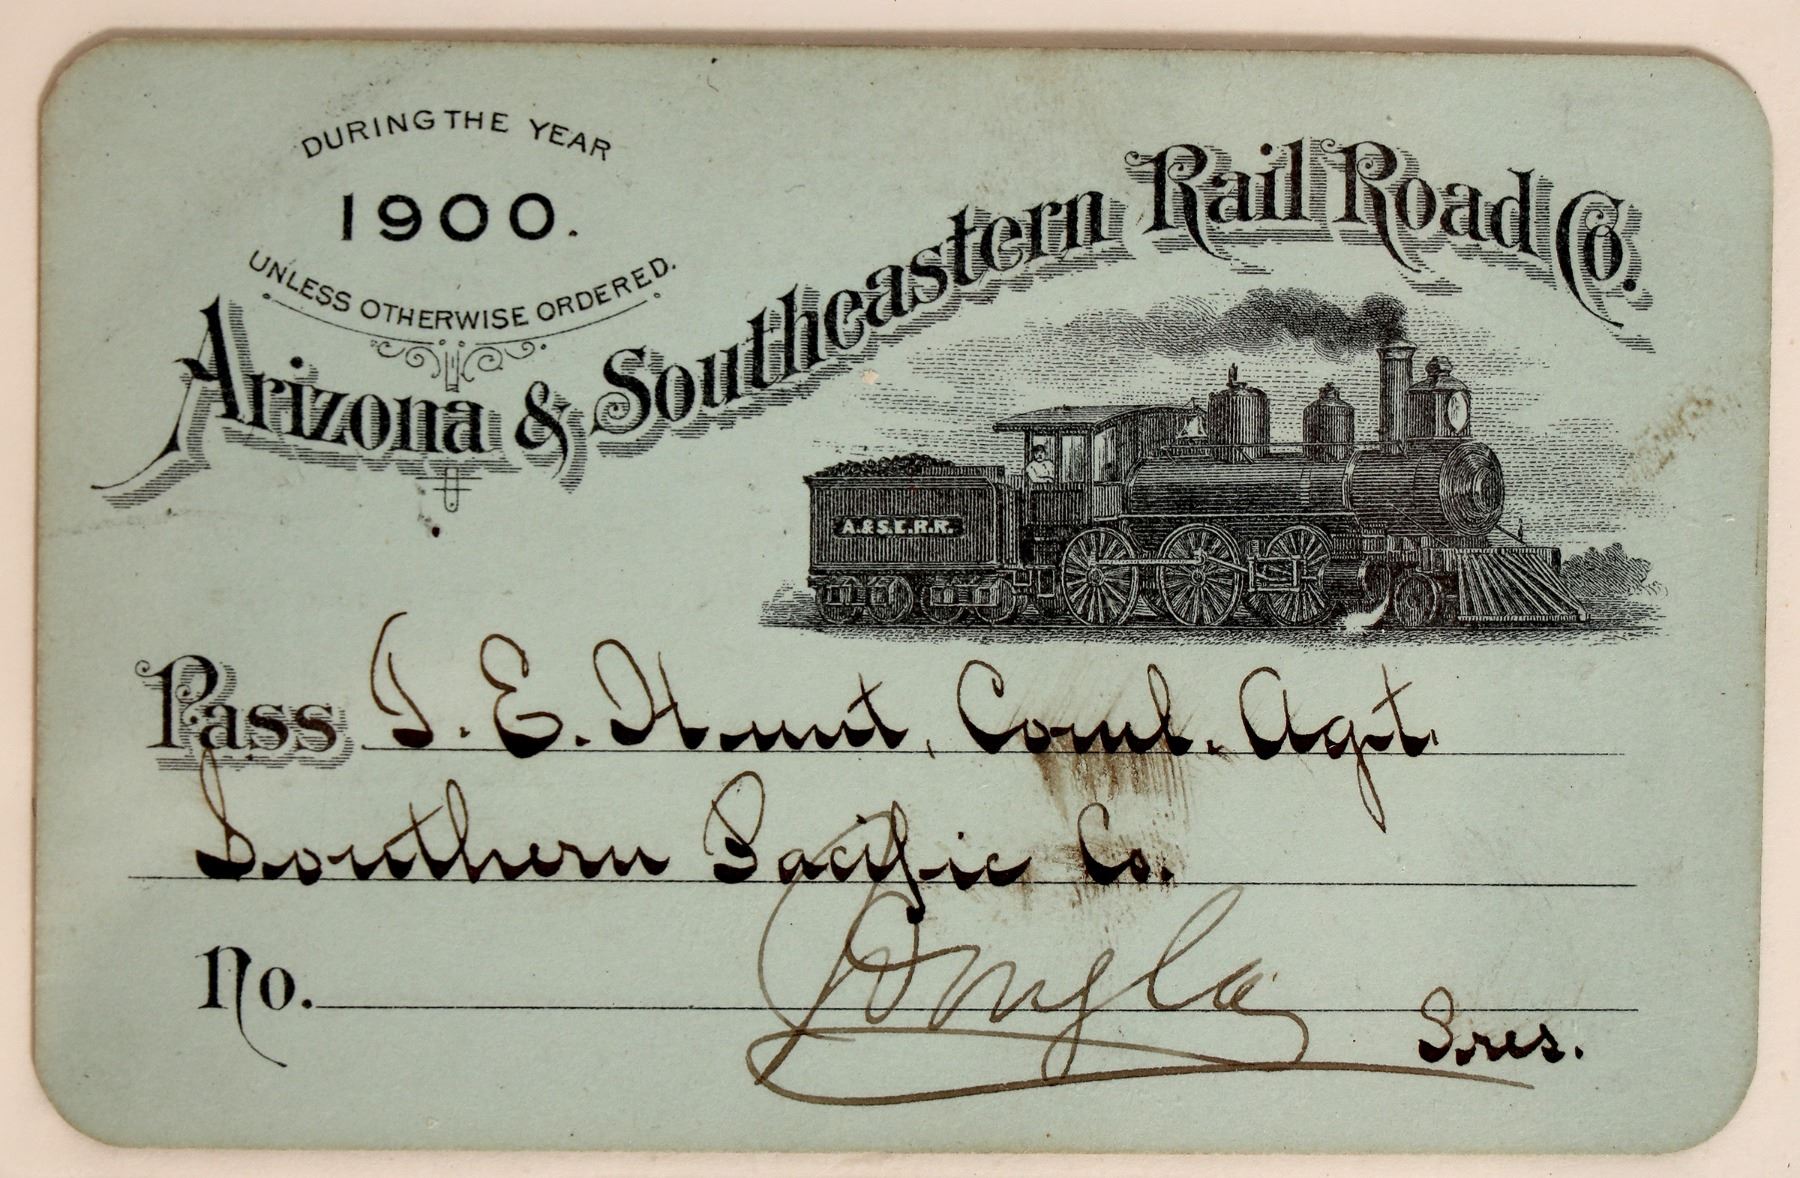 DURING THE YEAR
1900.
UNLESS OTHERWISE ORDERED.
Arizona & Southeastern Rail Road Co.
A. & S.E.R.R.
Pass I. E. Hunt, Coml. Agt.
Southern Pacific Co.
No.
Pres.